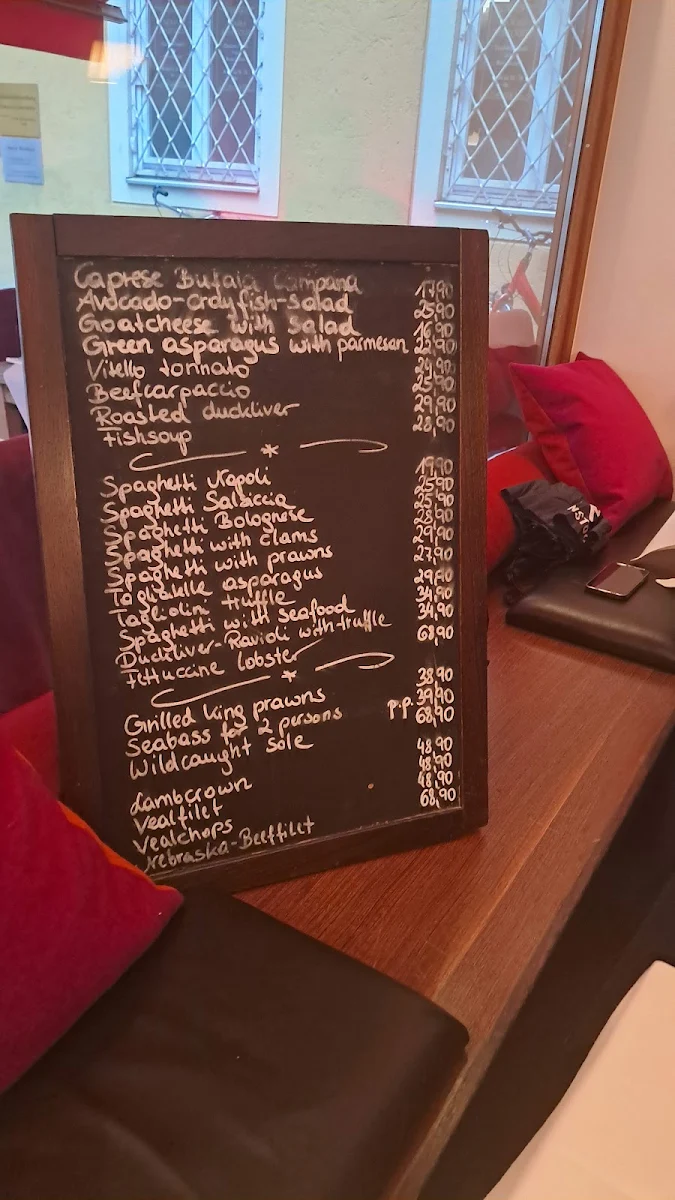 Caprese Bufala Campana 17,90
Avocado-crayfish-Salad 25,90
Goatcheese with Salad 16,90
Green asparagus with parmesan 22,90
Vitello tonnato 24,90
Beefcarpaccio 25,90
Roasted duckliver 29,90
Fishsoup 28,90
Spaghetti Napoli 19,90
Spaghetti Salsiccia 25,90
Spaghetti Bolognese 25,90
Spaghetti with clams 28,90
Spaghetti with prawns 29,90
Tagliatelle asparagus 27,90
Tagliolini truffle 29,90
Spaghetti with Seafood 34,90
Duckliver-Ravioli with truffle 34,90
Fettuccine lobster 68,90
Grilled king prawns 38,90
Seabass for 2 persons p.p. 39,90
Wildcaught sole 68,90
Lambcrown 48,90
Vealfilet 48,90
Vealchops 48,90
Nebraska-Beeffilet 68,90